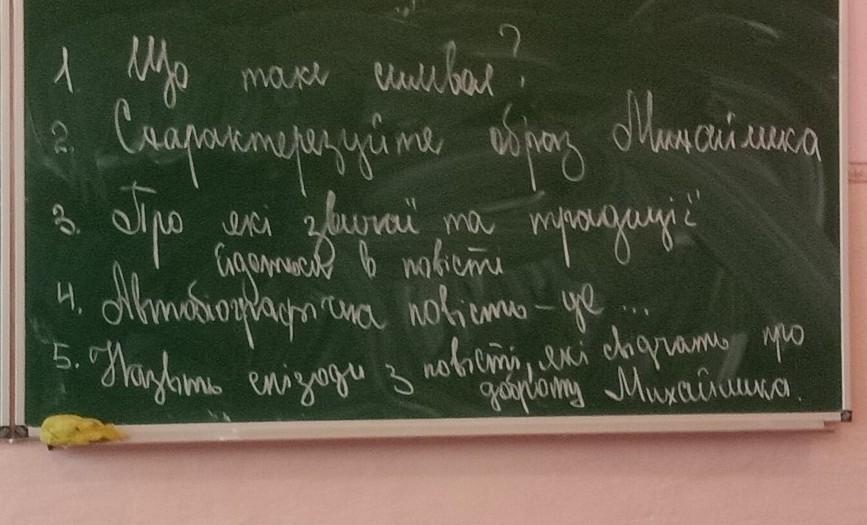 1 Що таке символ?
2. Схарактерезуйте образ Михайлика
3. Про які звичаї та традиції
йдеться в повісті
4. Автобіографічна повість - це ...
5. Назвіть епізоди з повісті, які свідчать про
доброту Михайлика.